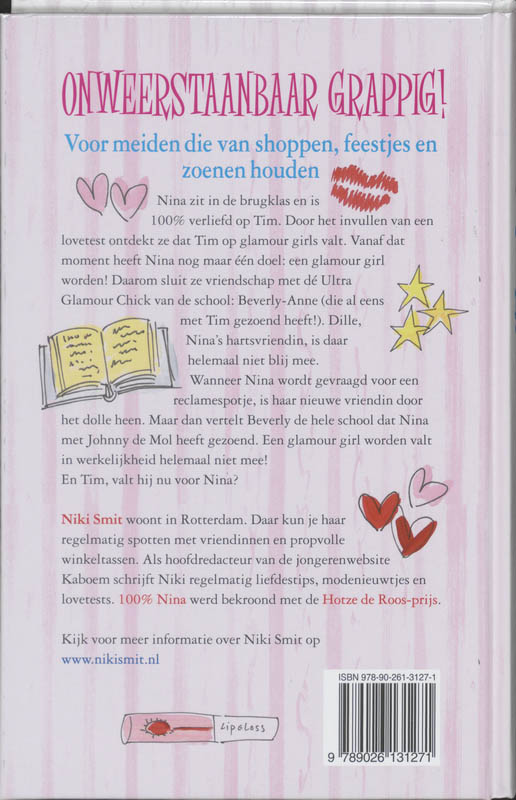 ONWEERSTAANBAAR GRAPPIG!
Voor meiden die van shoppen, feestjes en
zoenen houden
Nina zit in de brugklas en is
100% verliefd op Tim. Door het invullen van een
lovetest ontdekt ze dat Tim op glamour girls valt. Vanaf dat
moment heeft Nina nog maar één doel: een glamour girl
worden! Daarom sluit ze vriendschap met dé Ultra
Glamour Chick van de school: Beverly-Anne (die al eens
met Tim gezoend heeft!). Dille,
Nina's hartsvriendin, is daar
helemaal niet blij mee.
Wanneer Nina wordt gevraagd voor een
reclamespotje, is haar nieuwe vriendin door
het dolle heen. Maar dan vertelt Beverly de hele school dat Nina
met Johnny de Mol heeft gezoend. Een glamour girl worden valt
in werkelijkheid helemaal niet mee!
En Tim, valt hij nu voor Nina?
Niki Smit woont in Rotterdam. Daar kun je haar
regelmatig spotten met vriendinnen en propvolle
winkeltassen. Als hoofdredacteur van de jongerenwebsite
Kaboem schrijft Niki regelmatig liefdestips, modenieuwtjes en
lovetests. 100% Nina werd bekroond met de Hotze de Roos-prijs.
Kijk voor meer informatie over Niki Smit op
www.nikismit.nl
ISBN 978-90-261-3127-1
9 789026 131271
LipGLoss